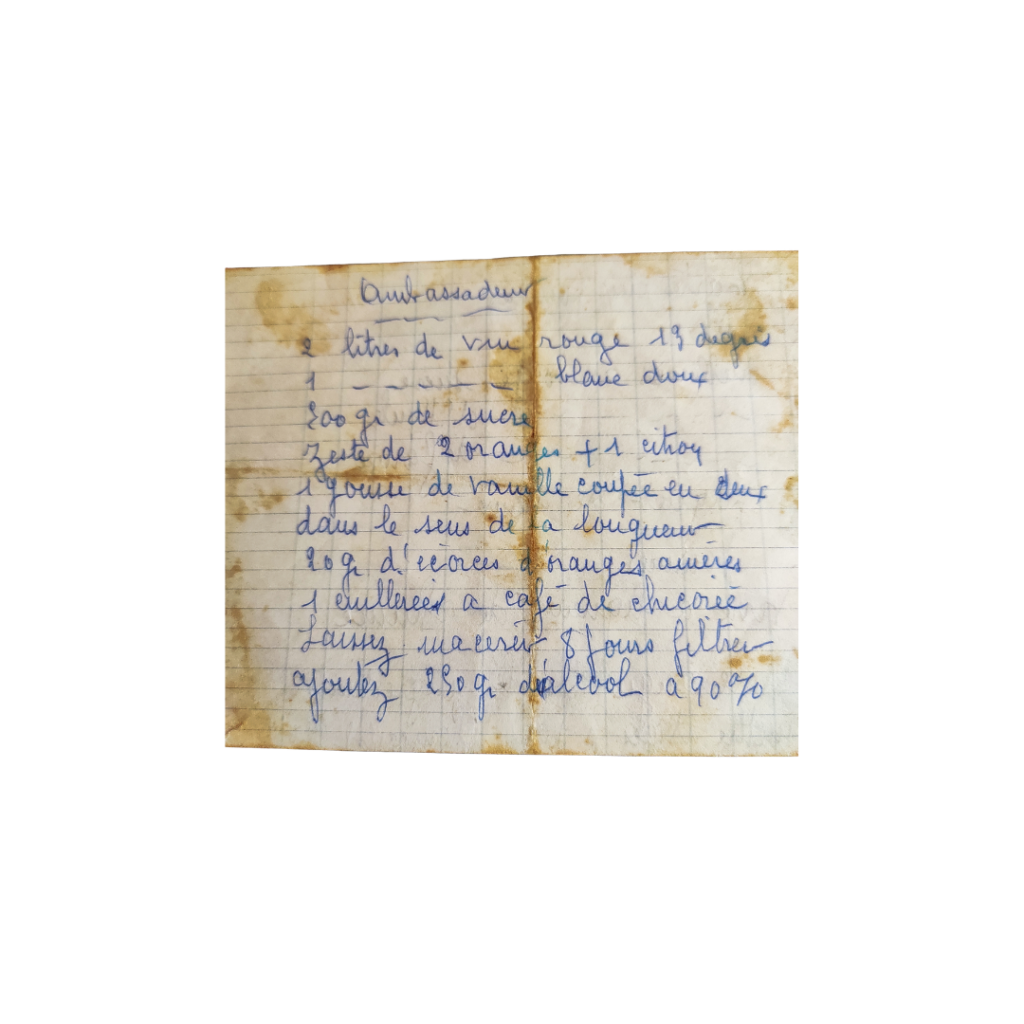 Ambassadeur
2 litres de vin rouge 13 degrés
1 - - - - - - blanc doux
500 gr de sucre
Zeste de 2 oranges + 1 citron
1 gousse de vanille coupée en deux
dans le sens de la longueur
20 gr d'écorces d'oranges amères
1 cuillerée à café de chicorée
Laissez macerer 8 jours filtrer
ajoutez 250 gr d'alcool a 90%